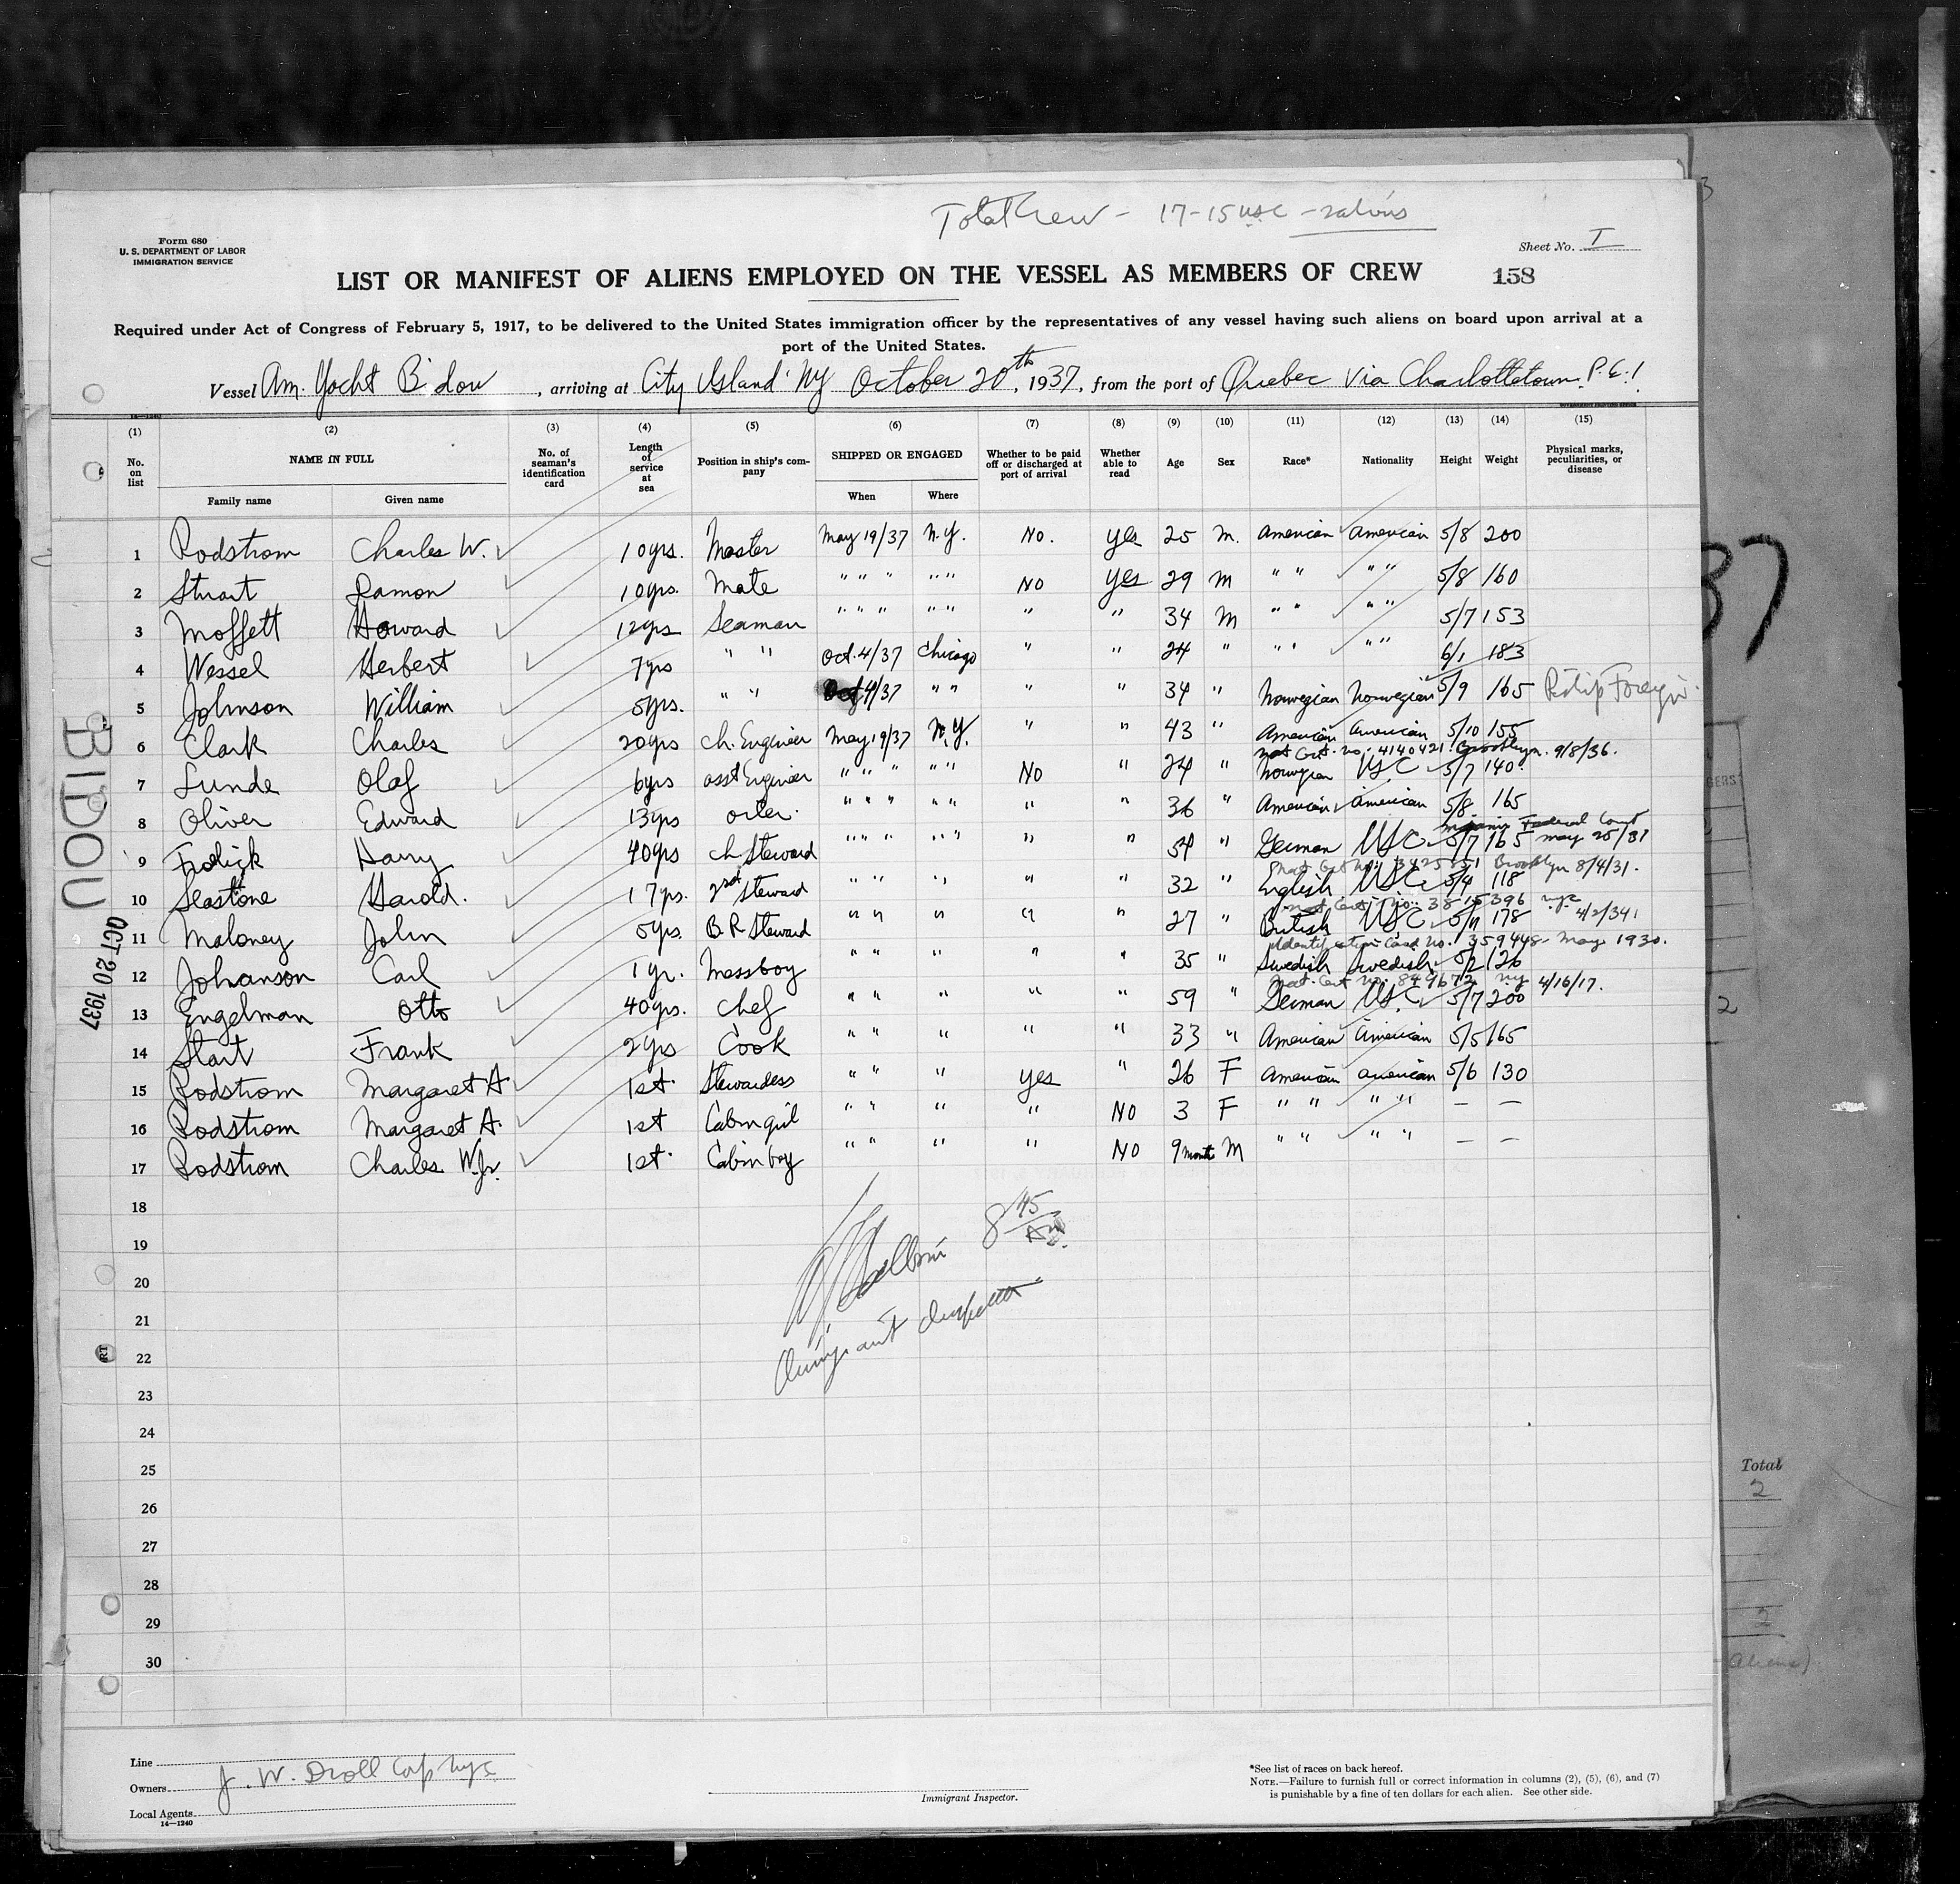 Total Crew - 17-15 USC - 2 aliens
Form 680
U. S. DEPARTMENT OF LABOR
IMMIGRATION SERVICE
Sheet No. I
LIST OR MANIFEST OF ALIENS EMPLOYED ON THE VESSEL AS MEMBERS OF CREW 158
Required under Act of Congress of February 5, 1917, to be delivered to the United States immigration officer by the representatives of any vessel having such aliens on board upon arrival at a
port of the United States.
Vessel Am. Yacht Bidou, arriving at City Island NY October 20th, 1937, from the port of Quebec Via Charlottetown. P.E.I
14—1240
(1) (2) (3) (4) (5) (6) (7) (8) (9) (10) (11) (12) (13) (14) (15)
No. on list NAME IN FULL No. of seaman's identification card Length of service at sea Position in ship's company SHIPPED OR ENGAGED Whether to be paid off or discharged at port of arrival Whether able to read Age Sex Race* Nationality Height Weight Physical marks, peculiarities, or disease
Family name Given name When Where
1 Rodstrom Charles W. 10yrs. Master May 19/37 N.Y. No. yes 25 M. American American 5/8 200
2 Stuart Ramon 10yrs. Mate " " " " " NO yes 29 M " " " " 5/8 160
3 Moffett Howard 12yrs Seaman " " " " " " " 34 M " " " " 5/7 153
4 Wessel Herbert 7yrs " " Oct. 4/37 Chicago " " 24 " " " " " 6/1 183
5 Johnson William 5yrs. " " Oct 4/37 " " " " 34 " Norwegian Norwegian 5/9 165
6 Clark Charles 20yrs Ch. Engineer May 19/37 N.Y. " " 43 " American American 5/10 155
Nat Cert. No. 4140421 Brooklyn. 9/8/36.
7 Lunde Olaf 6yrs asst Engineer " " " " " NO " 24 " Norwegian USC 5/7 140
8 Oliver Edward 13yrs oiler. " " " " " " 36 " American American 5/8 165
Federal Court
9 Harry 40yrs ch Steward " " " " " " " 54 " German USC 5/7 165 May 25/31
Brooklyn 8/4/31.
10 Seastone Harold. 17yrs. 2nd Steward " " " " " 32 " English USC 5/4 118
Nat Cert. No. 3815396 nyc 4/2/34
11 Maloney John 5yrs. B.R Steward " " " " " 27 " British USC 5/11 178
Identification Card No. 359448 - May 1930.
12 Johanson Carl 1yr. Messboy " " " " " 35 " Swedish Swedish 5/2 126
Nat. Cert No. 849672 N.Y 4/16/17.
13 Engelman Otto 40yrs. Chef " " " " " 59 " German USC. 5/7 200
14 Start Frank 2yrs Cook " " " " " 33 " American American 5/5 165
15 Rodstrom Margaret A 1st. Stewardess " " " yes " 26 F American American 5/6 130
16 Rodstrom Margaret A. 1st Cabin girl " " " " NO 3 F " " " " — —
17 Rodstrom Charles W. Jr. 1st. Cabin boy " " " " NO 9 month M " " " " — —
18
19
20
21
22
23
24
25
26
27
28
29
30
8 45 AM
Immigrant Inspector
BIDOU
OCT 20 1937
RT
37
2
Total
2
2
aliens)
Line
Owners
Local Agents
J. W. Droll
14—1240
Immigrant Inspector.
*See list of races on back hereof.
NOTE.—Failure to furnish full or correct information in columns (2), (5), (6), and (7)
is punishable by a fine of ten dollars for each alien. See other side.